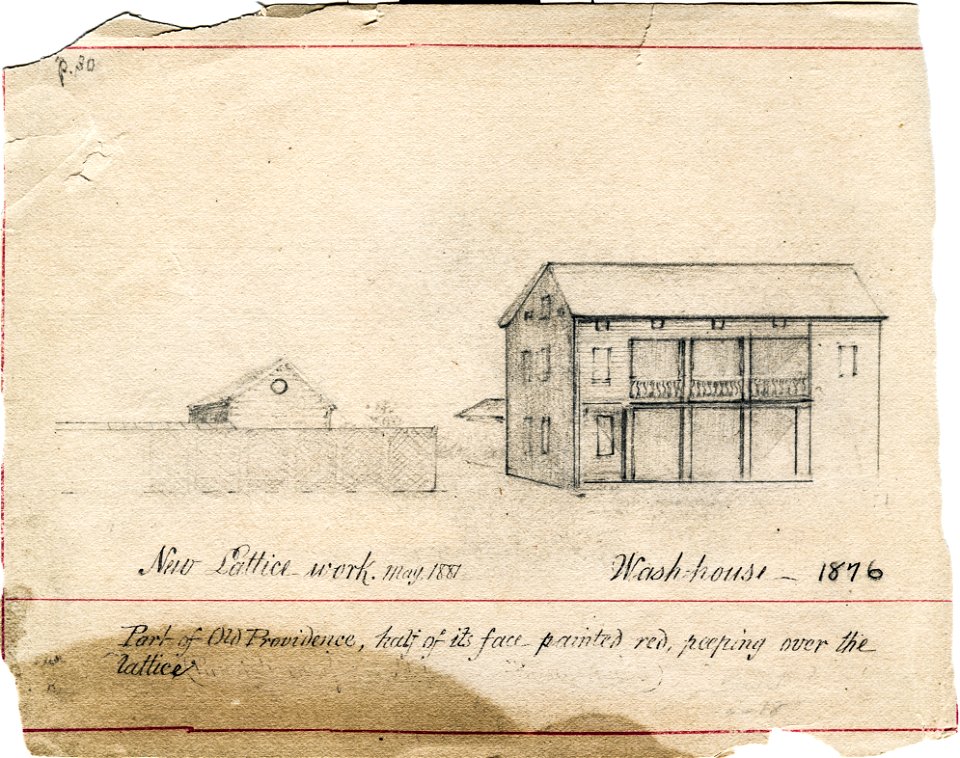 p. 80
New Lattice work. May. 1881
Wash-house – 1876
Part of Old Providence, half of its face painted red, peeping over the
lattice